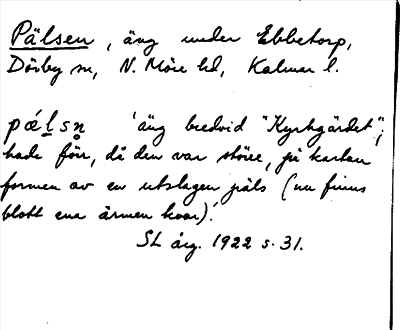 Pälsen, äng under Ebbetorp,
Dörby sn, N. Möre hd, Kalmar l.
pǽḷsn̥ 'äng bredvid "Kyrkgärdet";
hade förr, då den var större, på kartan
formen av en utslagen päls (nu finns
blott ena ärmen kvar).'
SL årg. 1922 s. 31.